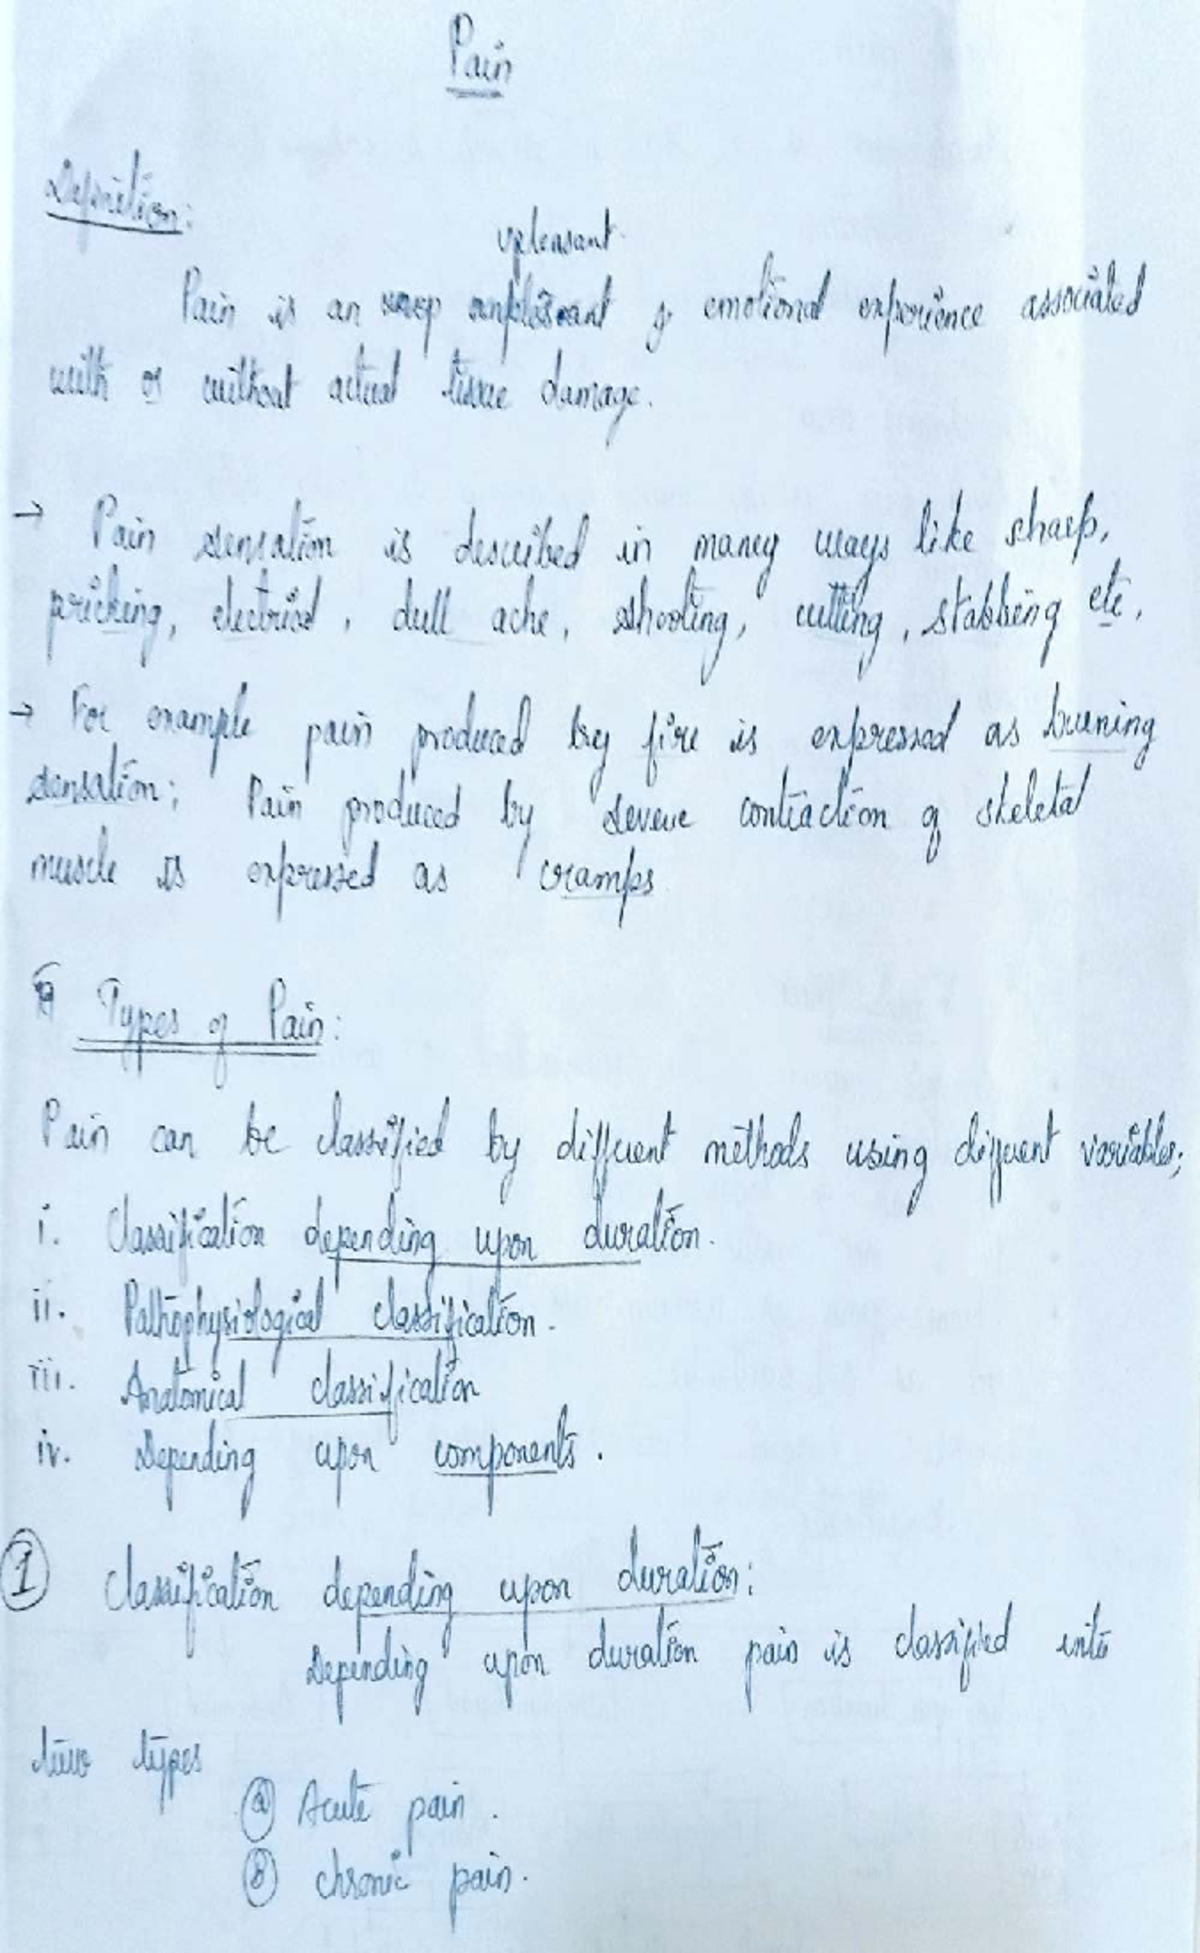 Pain
Definition:
upleasant.
Pain is an & emotional experience associated
with or without actual tissue damage.
→ Pain sensation is described in many ways like sharp,
pricking, electrical, dull ache, shooting, cutting, stabbing etc,
→ For example pain produced by fire is expressed as burning
sensation; Pain produced by severe contraction of skeletal
muscle is expressed as cramps
Types of Pain:
Pain can be classified by different methods using different variables;
i. Classification depending upon duration.
ii. Pathophysiological classification.
iii. Anatomical classification
iv. Depending upon components.
1 Classification depending upon duration:
Depending upon duration pain is classified into
two types
a Acute pain.
b chronic pain.